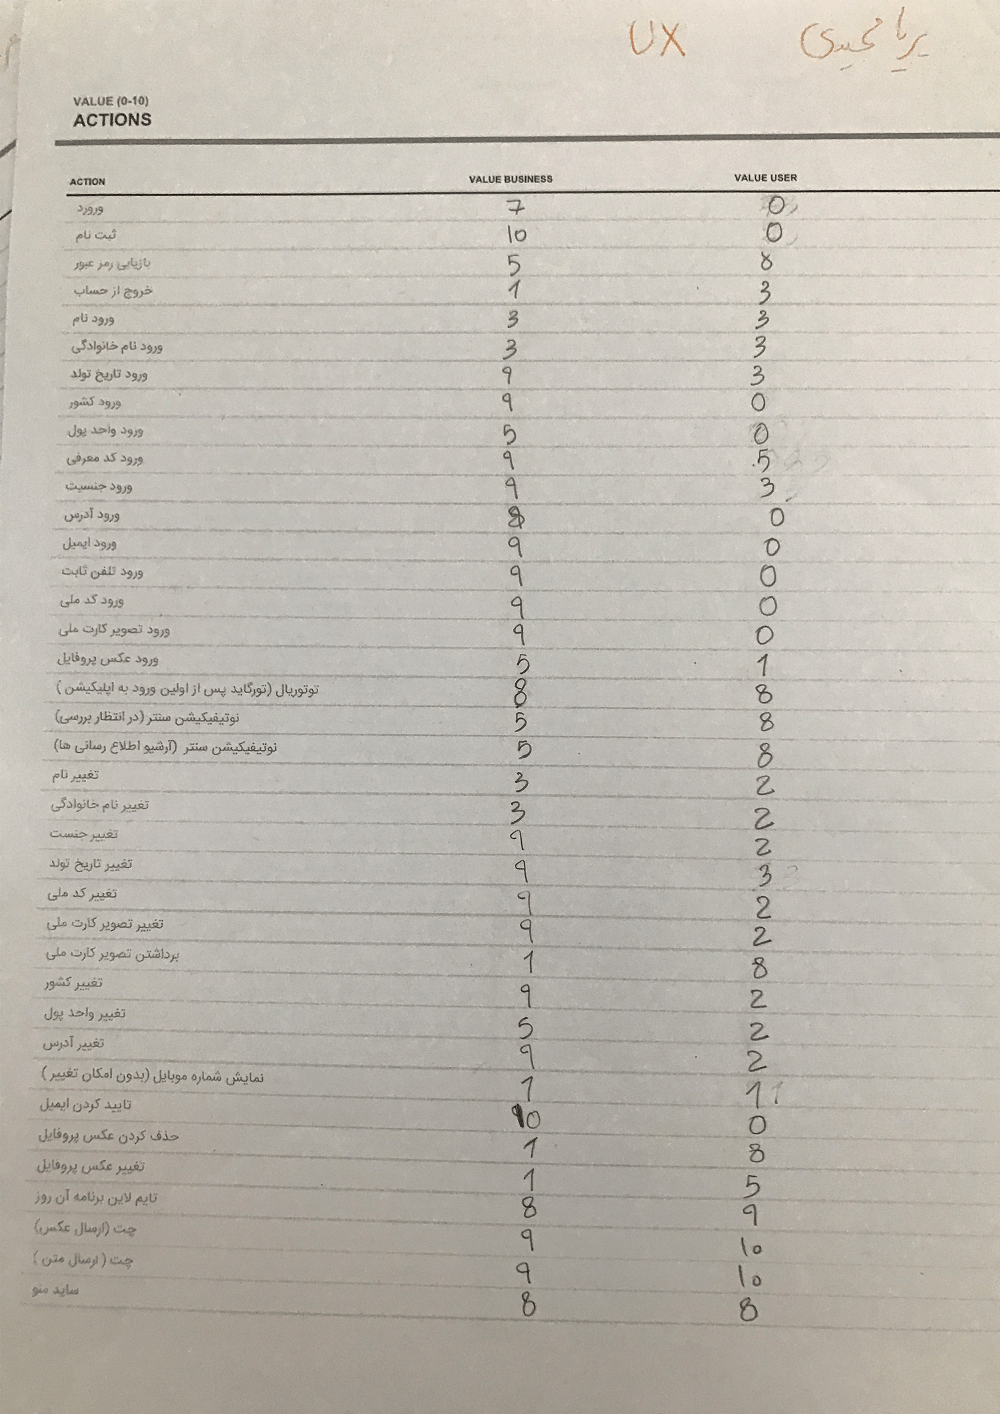 UX پریا مجیدی
VALUE (0-10)
ACTIONS
ACTION VALUE BUSINESS VALUE USER
ورورد 7 0
ثبت نام 10 0
بازیابی رمز عبور 5 8
خروج از حساب 1 3
ورود نام 3 3
ورود نام خانوادگی 3 3
ورود تاریخ تولد 9 3
ورود کشور 9 0
ورود واحد پول 5 0
ورود کد معرفی 9 5
ورود جنسیت 9 3
ورود آدرس 8 0
ورود ایمیل 9 0
ورود تلفن ثابت 9 0
ورود کد ملی 9 0
ورود تصویر کارت ملی 9 0
ورود عکس پروفایل 5 1
توتوریال (تورگاید پس از اولین ورود به اپلیکیشن ) 8 8
نوتیفیکیشن سنتر (در انتظار بررسی) 5 8
نوتیفیکیشن سنتر (آرشیو اطلاع رسانی ها) 5 8
تغییر نام 3 2
تغییر نام خانوادگی 3 2
تغییر جنست 9 2
تغییر تاریخ تولد 9 3
تغییر کد ملی 9 2
تغییر تصویر کارت ملی 9 2
برداشتن تصویر کارت ملی 1 8
تغییر کشور 9 2
تغییر واحد پول 5 2
تغییر آدرس 9 2
نمایش شماره موبایل (بدون امکان تغییر ) 1 1
تایید کردن ایمیل 10 0
حذف کردن عکس پروفایل 1 8
تغییر عکس پروفایل 1 5
تایم لاین برنامه آن روز 8 9
چت (ارسال عکس) 9 10
چت ( ارسال متن ) 9 10
ساید منو 8 8